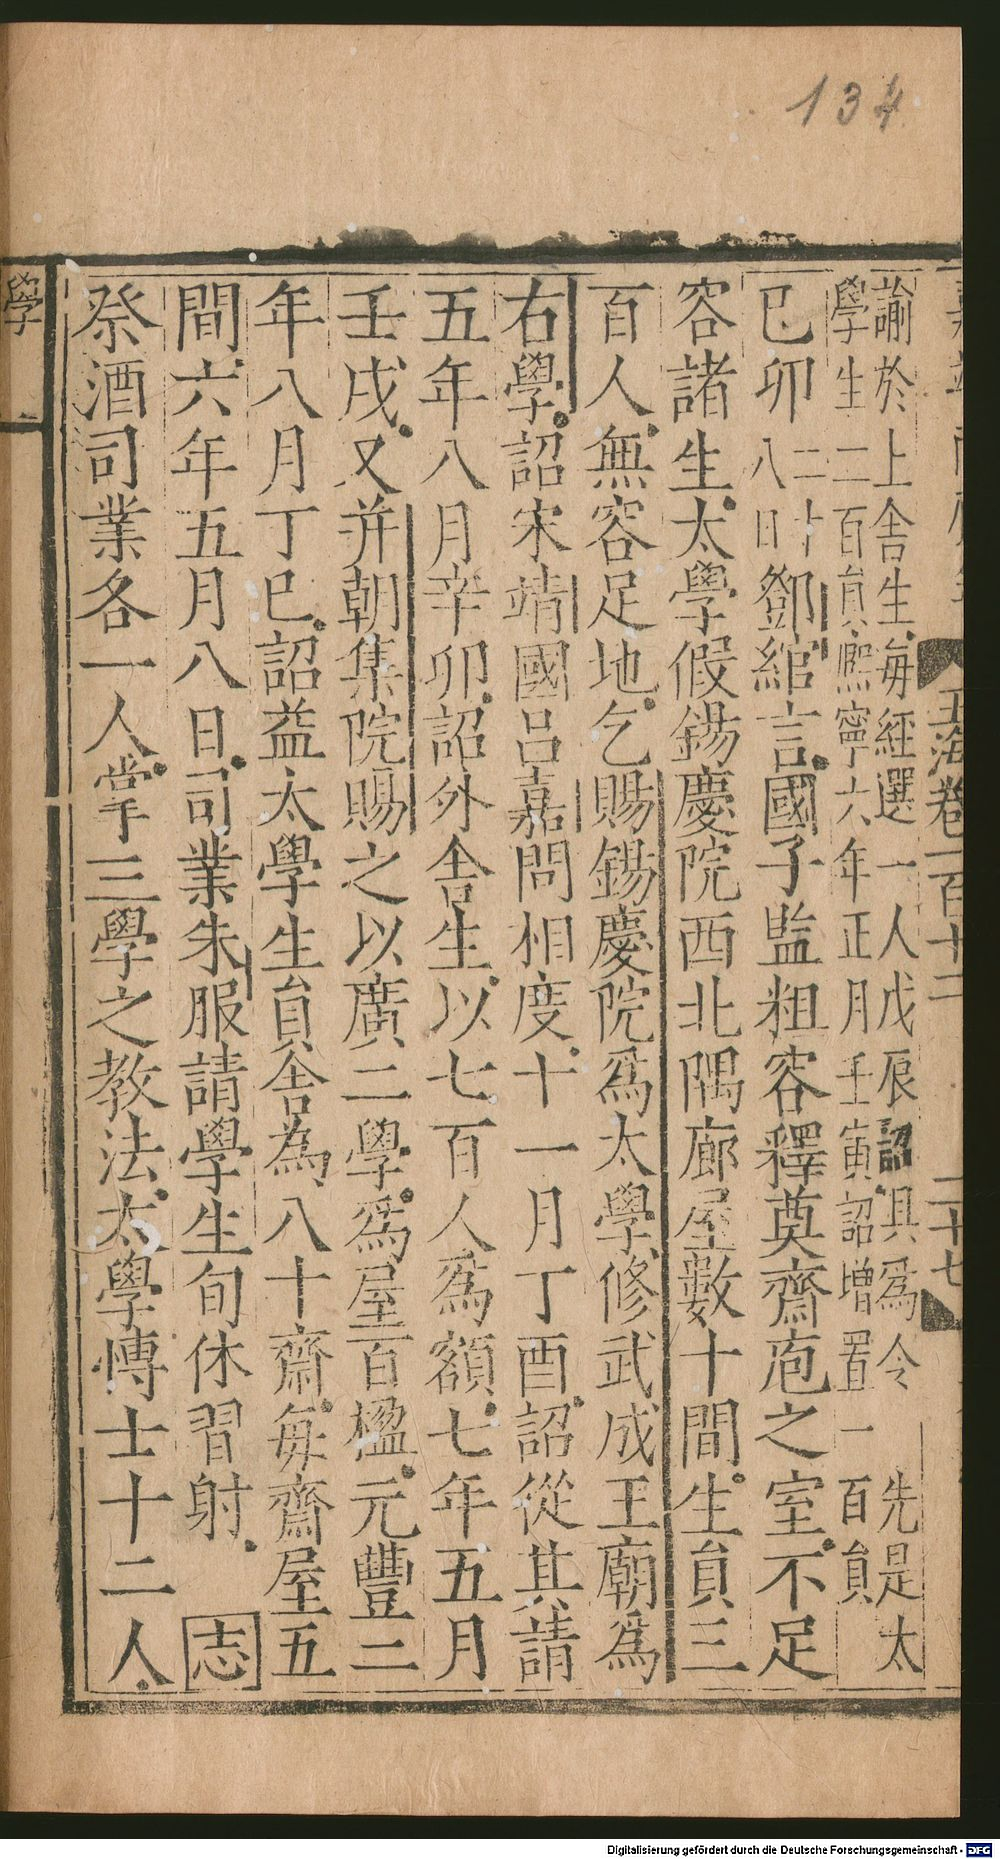 134
玉海卷一百十二
二十七
諭於上舍生每經選一人戊辰詔具爲令　先是太
學生二百員熙寧六年正月壬寅詔增置一百員
已卯二十八日鄧綰言國子監粗容釋奠齋庖之室不足
容諸生太學假錫慶院西北隅廊屋數十間生員三
百人無容足地乞賜錫慶院爲太學修武成王廟爲
右學詔宋靖國呂嘉問相度十一月丁酉詔從其請
五年八月辛卯詔外舍生以七百人爲額七年五月
壬戌又并朝集院賜之以廣二學爲屋百楹元豐二
年八月丁巳詔益太學生員舍為八十齋每齋屋五
間六年五月八日司業朱服請學生旬休習射　志
祭酒司業各一人掌三學之教法太學博士十二人
學
Digitalisierung gefördert durch die Deutsche Forschungsgemeinschaft - DFG